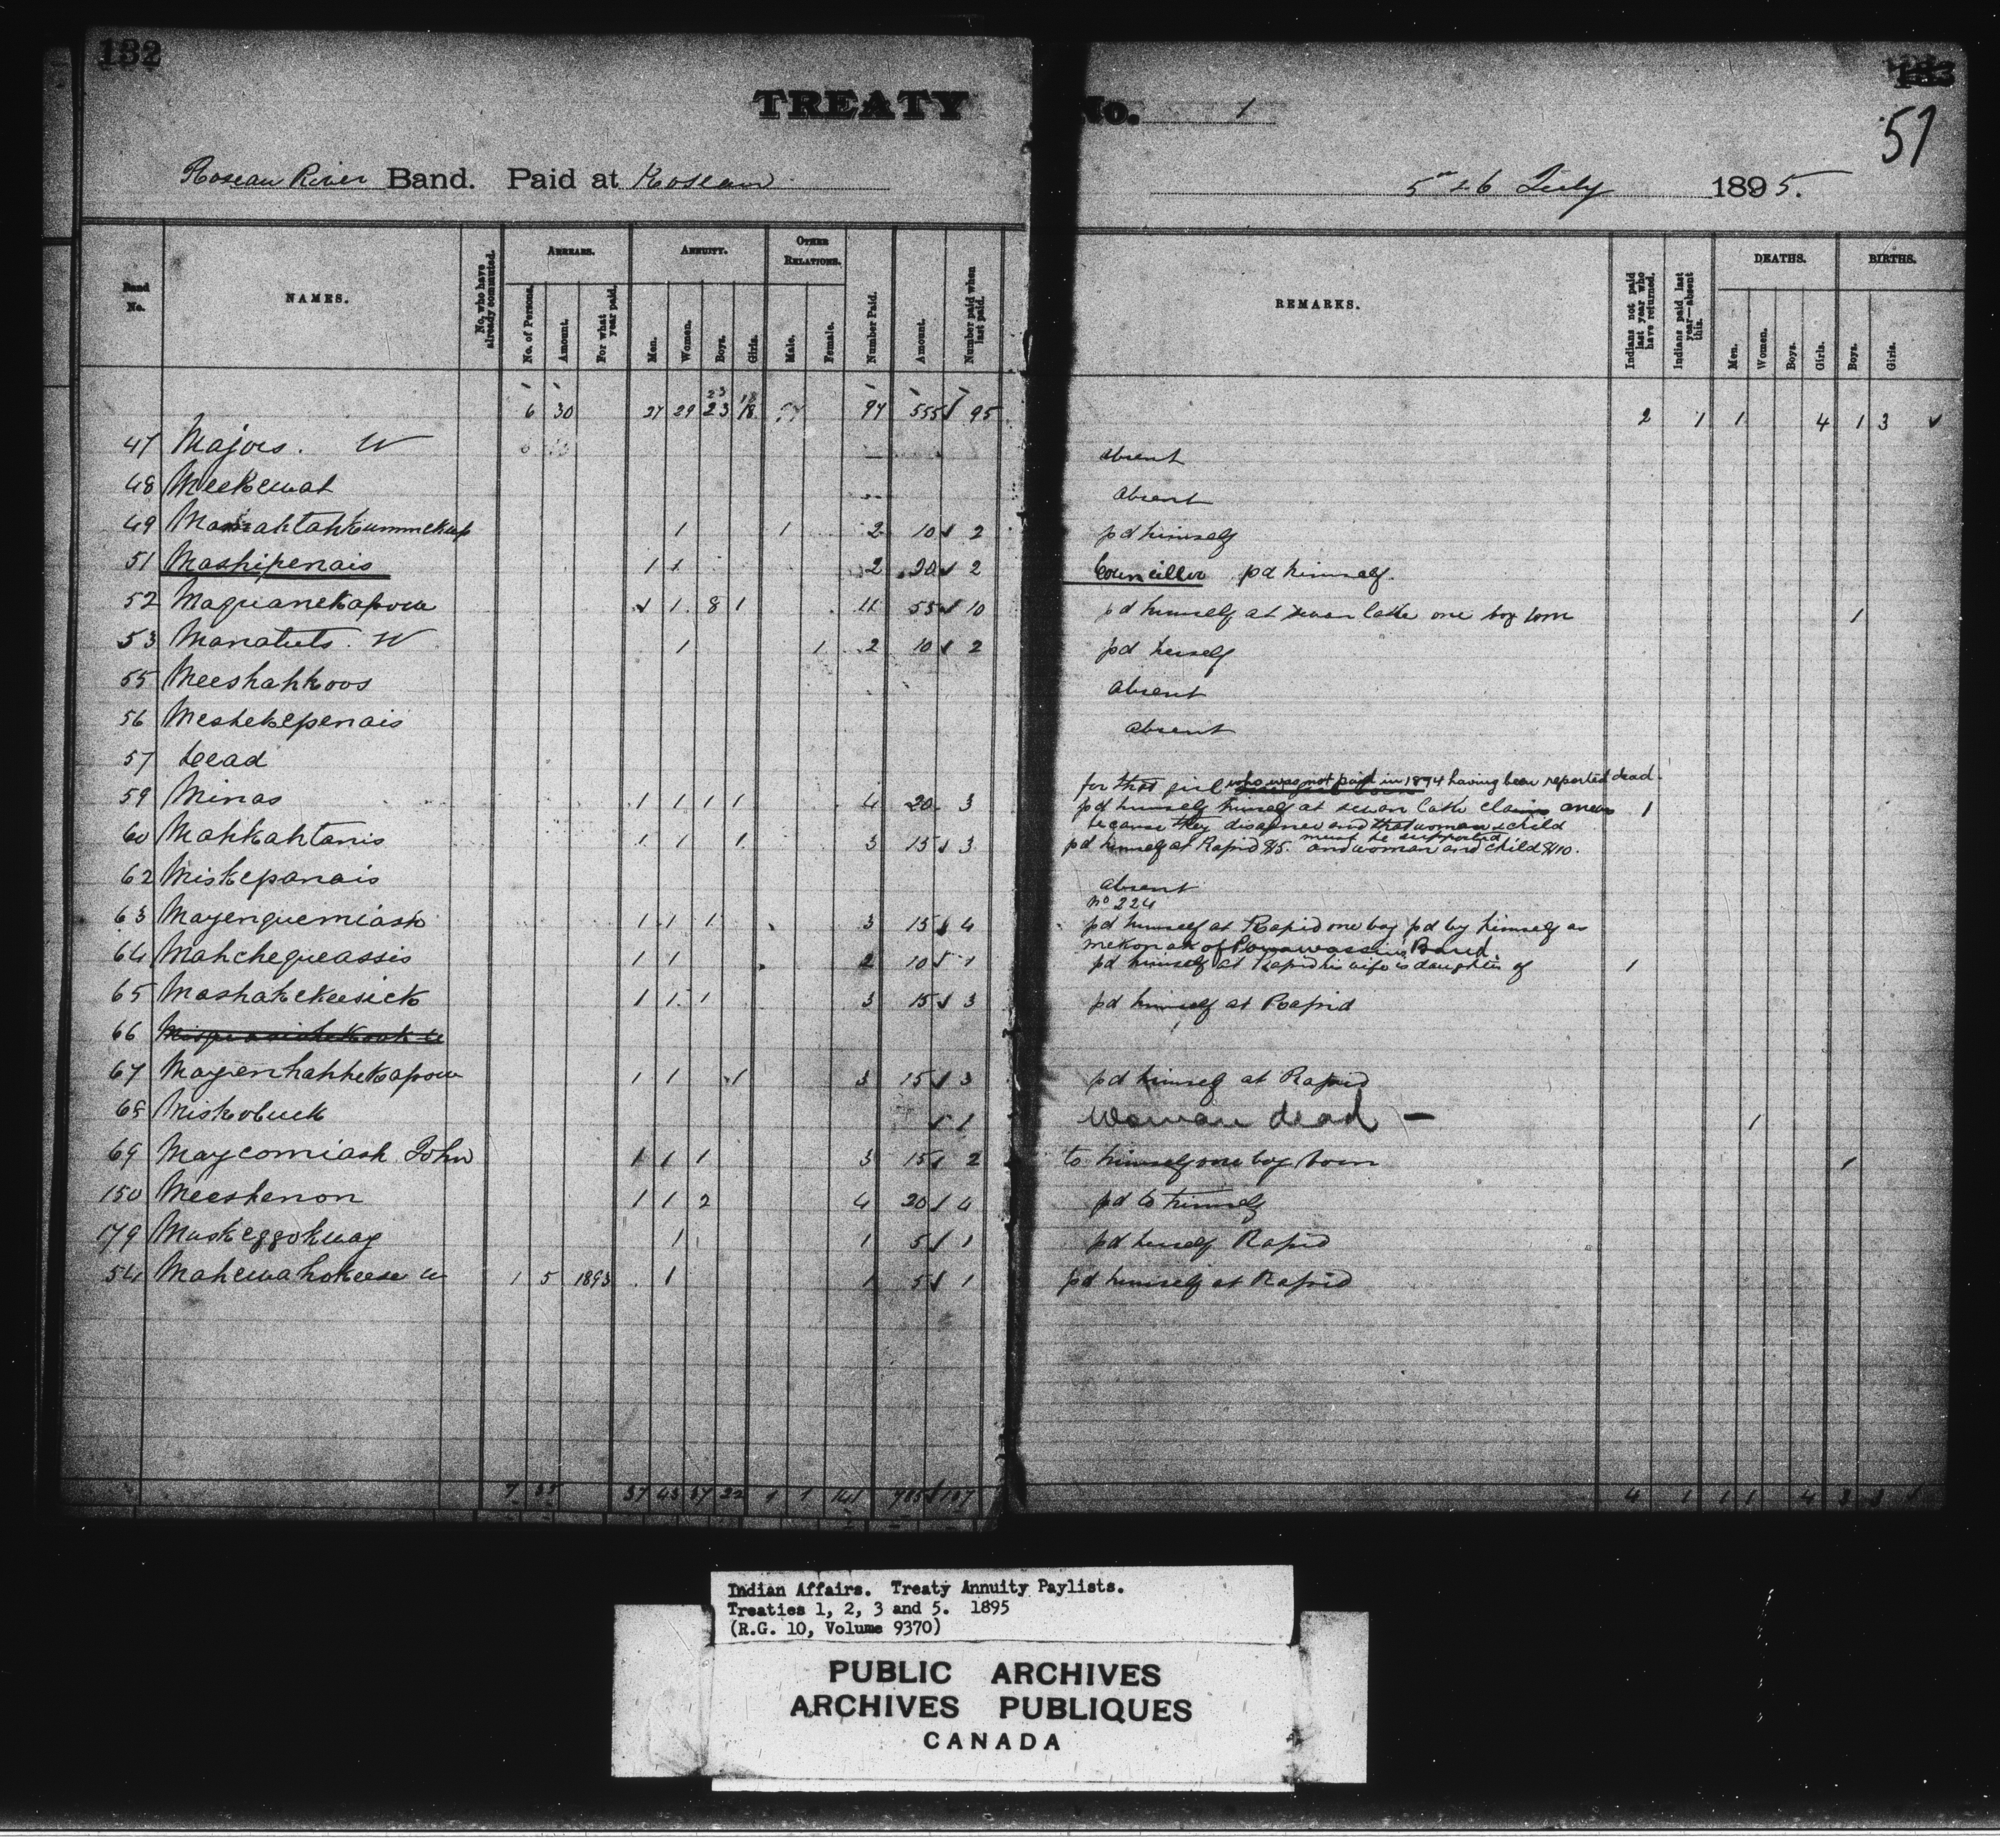 132
TREATY No. 1
51
Roseau River Band. Paid at Roseau 5 & 6 July 1895.
Band No. NAMES. No. who have already commuted. ARREARS. No. of Persons. Amount. For what year paid. ANNUITY. Men. Women. Boys. Girls. OTHER RELATIONS. Male. Female. Number Paid. Amount. Number paid when last paid. REMARKS. Indians not paid last year who have returned. Indians paid last year—absent this. DEATHS. Men. Women. Boys. Girls. BIRTHS. Boys. Girls.
6 30 27 29 23 18 97 555 95 2 1 1 4 1 3
47 Majors. W absent
48 Meekewat absent
49 1 1 2 10 2 pd himself
51 Mashipenais 1 1 2 20 2 Councillor pd himself.
52 Maquanekapow 1 8 1 11 55 10 pd himself at swan lake one boy born 1
53 Manatuts. W 1 1 2 10 2 pd herself
55 Meeshahkoos absent
56 Meshekepenais absent
57 Dead
for that girl who was not paid in 1894 having been reported dead.
59 Minas 1 1 1 1 4 20 3 pd himself himself at swan lake claims 1
because they disagree and that woman & child
must be supported
60 Mahkahtanis 1 1 1 3 15 3 pd himself at Rapid $5. and woman and child $10.
62 Miskepanais absent
No 224
63 Mayenguemiash 1 1 1 3 15 4 pd himself at Rapid one boy pd by himself as
mekonak of Band.
64 Mahchequeassis 1 1 2 10 1 pd himself at Rapid his wife is daughter of 1
65 Mashakekeesick 1 1 1 3 15 3 pd himself at Rapid
66
67 Mayenhahkekapow 1 1 1 3 15 3 pd himself at Rapid
68 Miskobuck 1 Woman dead — 1
69 Maycomiash John 1 1 1 3 15 2 to himself one boy born 1
150 Meeshenon 1 1 2 4 20 4 pd to himself
179 Muskeggokuay 1 1 5 1 pd herself Rapid
54 Mahewahokeese w 1 5 1893 1 1 5 1 pd himself at Rapid
7 35 37 43 37 22 1 1 141 137 4 1 1 1 4 3 3
Indian Affairs. Treaty Annuity Paylists.
Treaties 1, 2, 3 and 5. 1895
(R.G. 10, Volume 9370)
PUBLIC ARCHIVES
ARCHIVES PUBLIQUES
CANADA